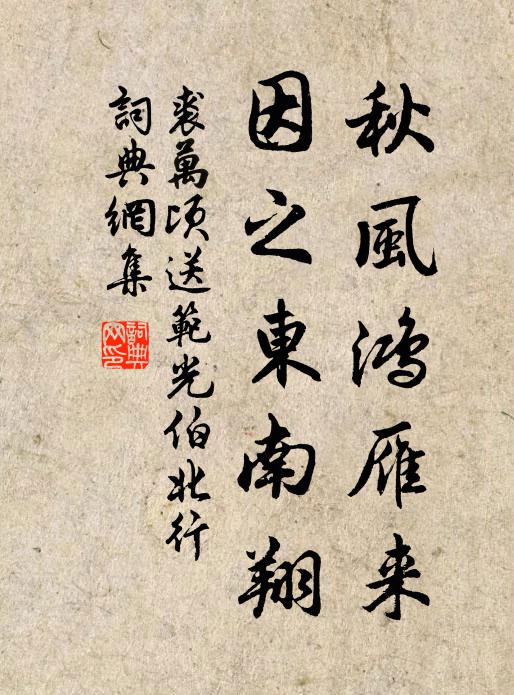 秋風鴻雁来
因之東南翔
裘萬頃送範光伯北行
詞典網集
詞典網印